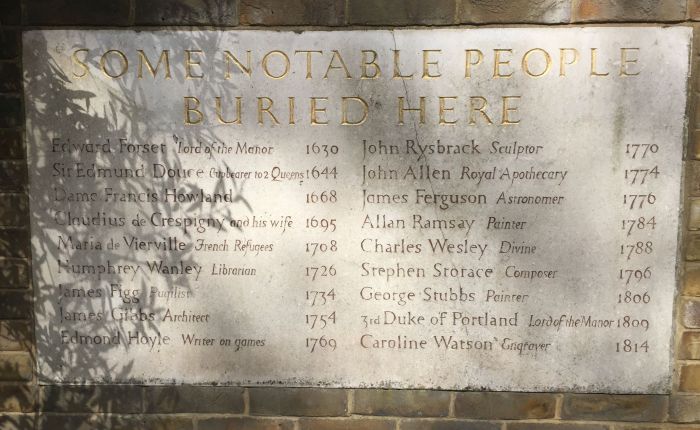 SOME NOTABLE PEOPLE
BURIED HERE
Edward Forset Lord of the Manor 1630
Sir Edmund Douce Cupbearer to 2 Queens 1644
Dame Francis Howland 1668
Claudius de Crespigny and his wife 1695
Maria de Vierville French Refugees 1708
Humphrey Wanley Librarian 1726
James Figg Pugilist 1734
James Gibbs Architect 1754
Edmond Hoyle Writer on games 1769
John Rysbrack Sculptor 1770
John Allen Royal Apothecary 1774
James Ferguson Astronomer 1776
Allan Ramsay Painter 1784
Charles Wesley Divine 1788
Stephen Storace Composer 1796
George Stubbs Painter 1806
3rd Duke of Portland Lord of the Manor 1809
Caroline Watson Engraver 1814